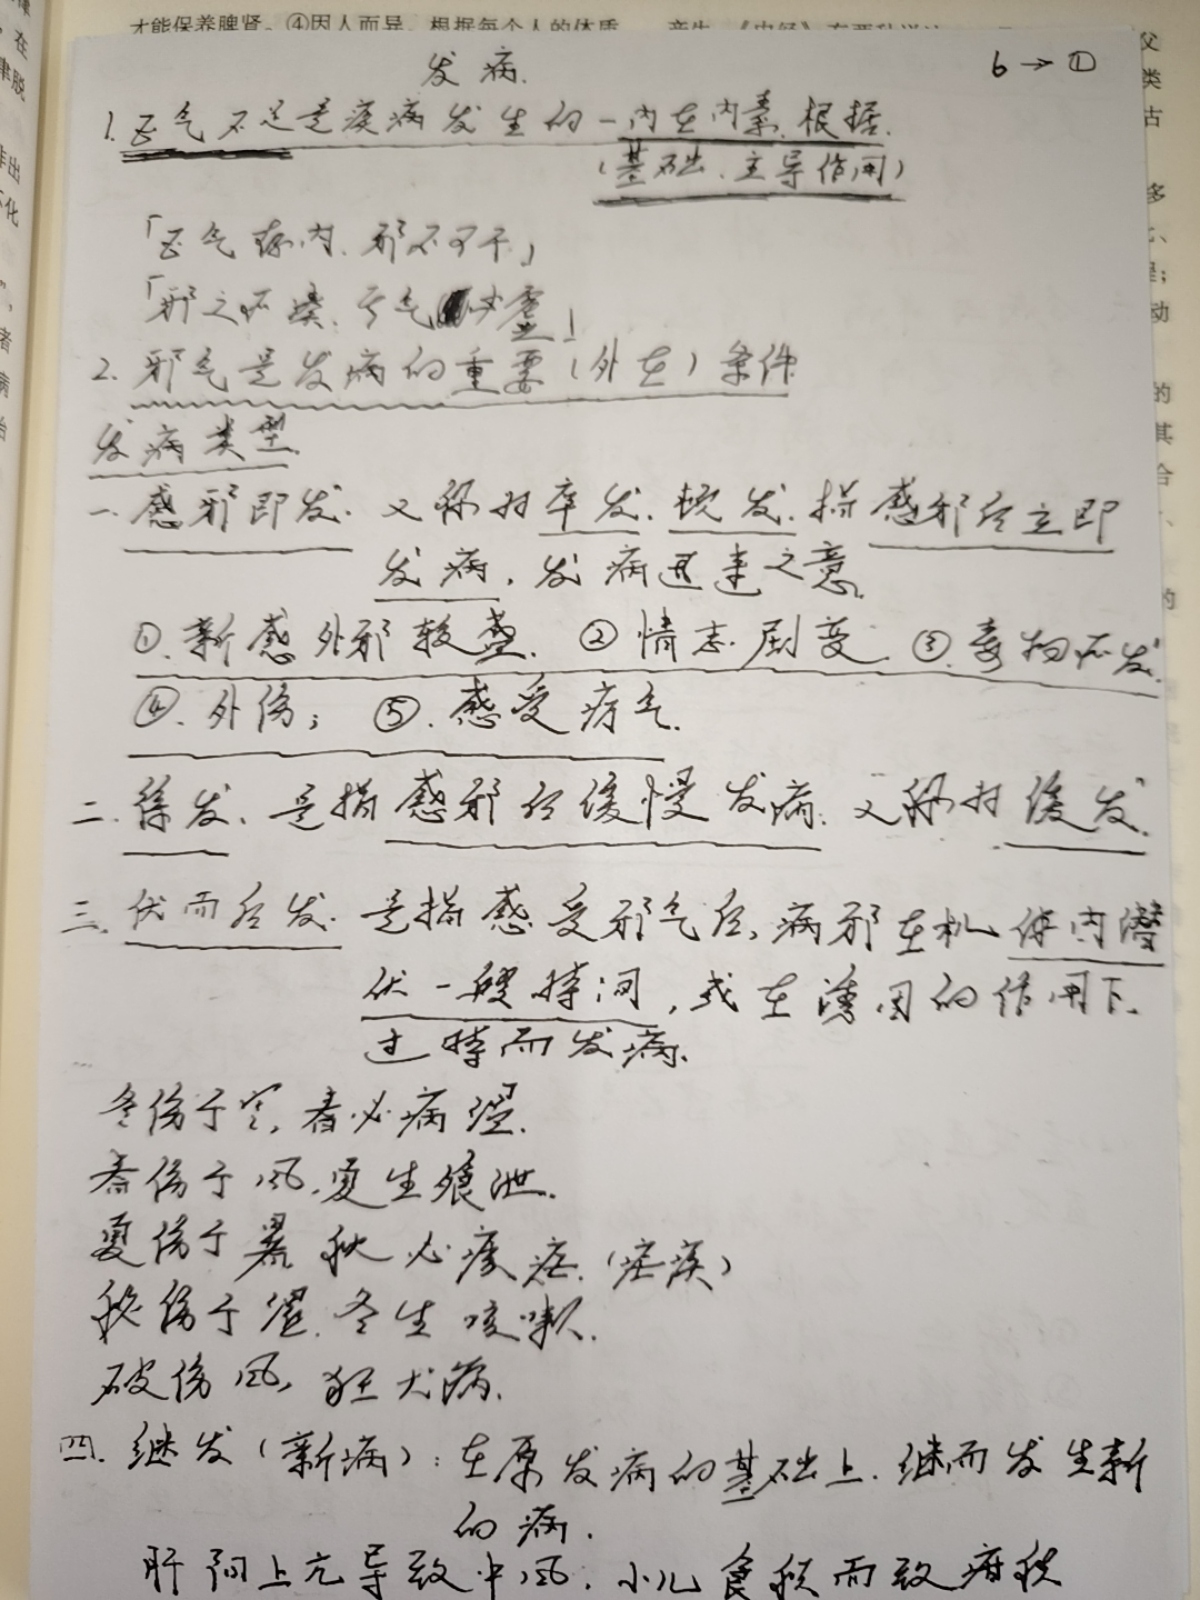 才能保养脾肾。④因人而异。根据每个人的体质
发病.
6→①
1.正气不足是疾病发生的一内在内素.根据.
(基础.主导作用)
「正气存内.邪不可干」
「邪之所凑.其气必虚」
2.邪气是发病的重要(外在)条件
发病类型.
一.感邪即发.又称为卒发.顿发.指感邪后立即
发病,发病迅速之意.
①.新感外邪较盛.②情志剧变.③.毒物所发.
④.外伤;⑤.感受疠气.
二.徐发.是指感邪后缓慢发病.又称为缓发.
三.伏而后发.是指感受邪气后,病邪在机体内潜
伏一段时间,或在诱因的作用下.
过时而发病.
冬伤于寒,春必病温.
春伤于风,夏生飧泄.
夏伤于暑 秋必痎疟.(疟疾)
秋伤于湿.冬生咳嗽.
破伤风,狂犬病.
四.继发(新病):在原发病的基础上.继而发生新
的病.
肝阳上亢导致中风.小儿食积而致疳积